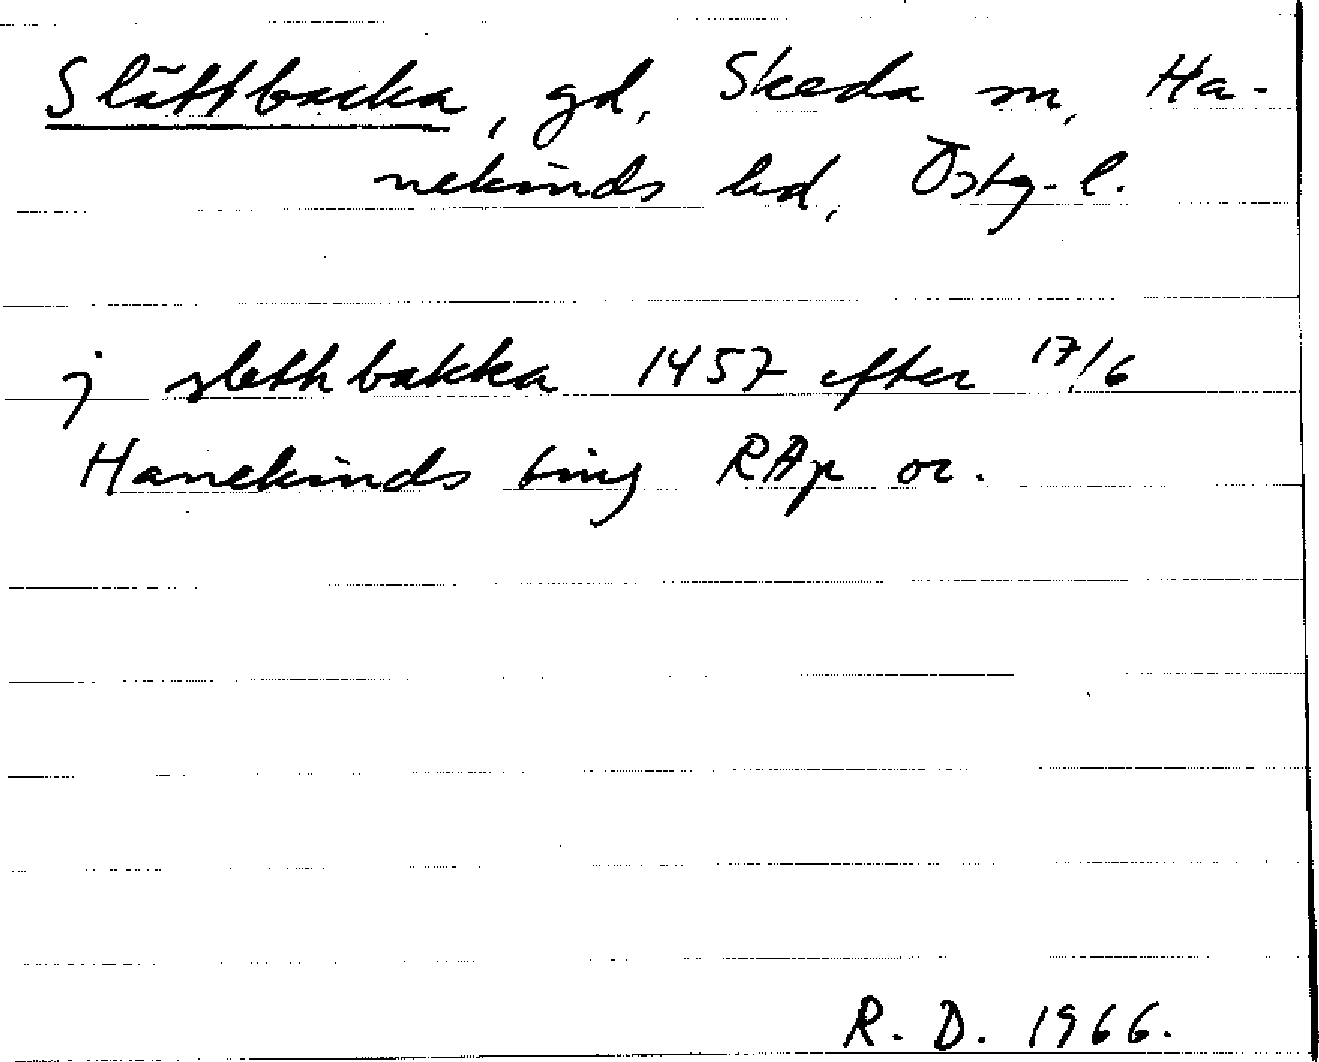 Slättbacka, gd, Skeda sn, Ha-
nekinds hd, Östg. l.
j slethbakka 1457 efter 17/6
Hanekinds ting RAp or.
R. D. 1966.